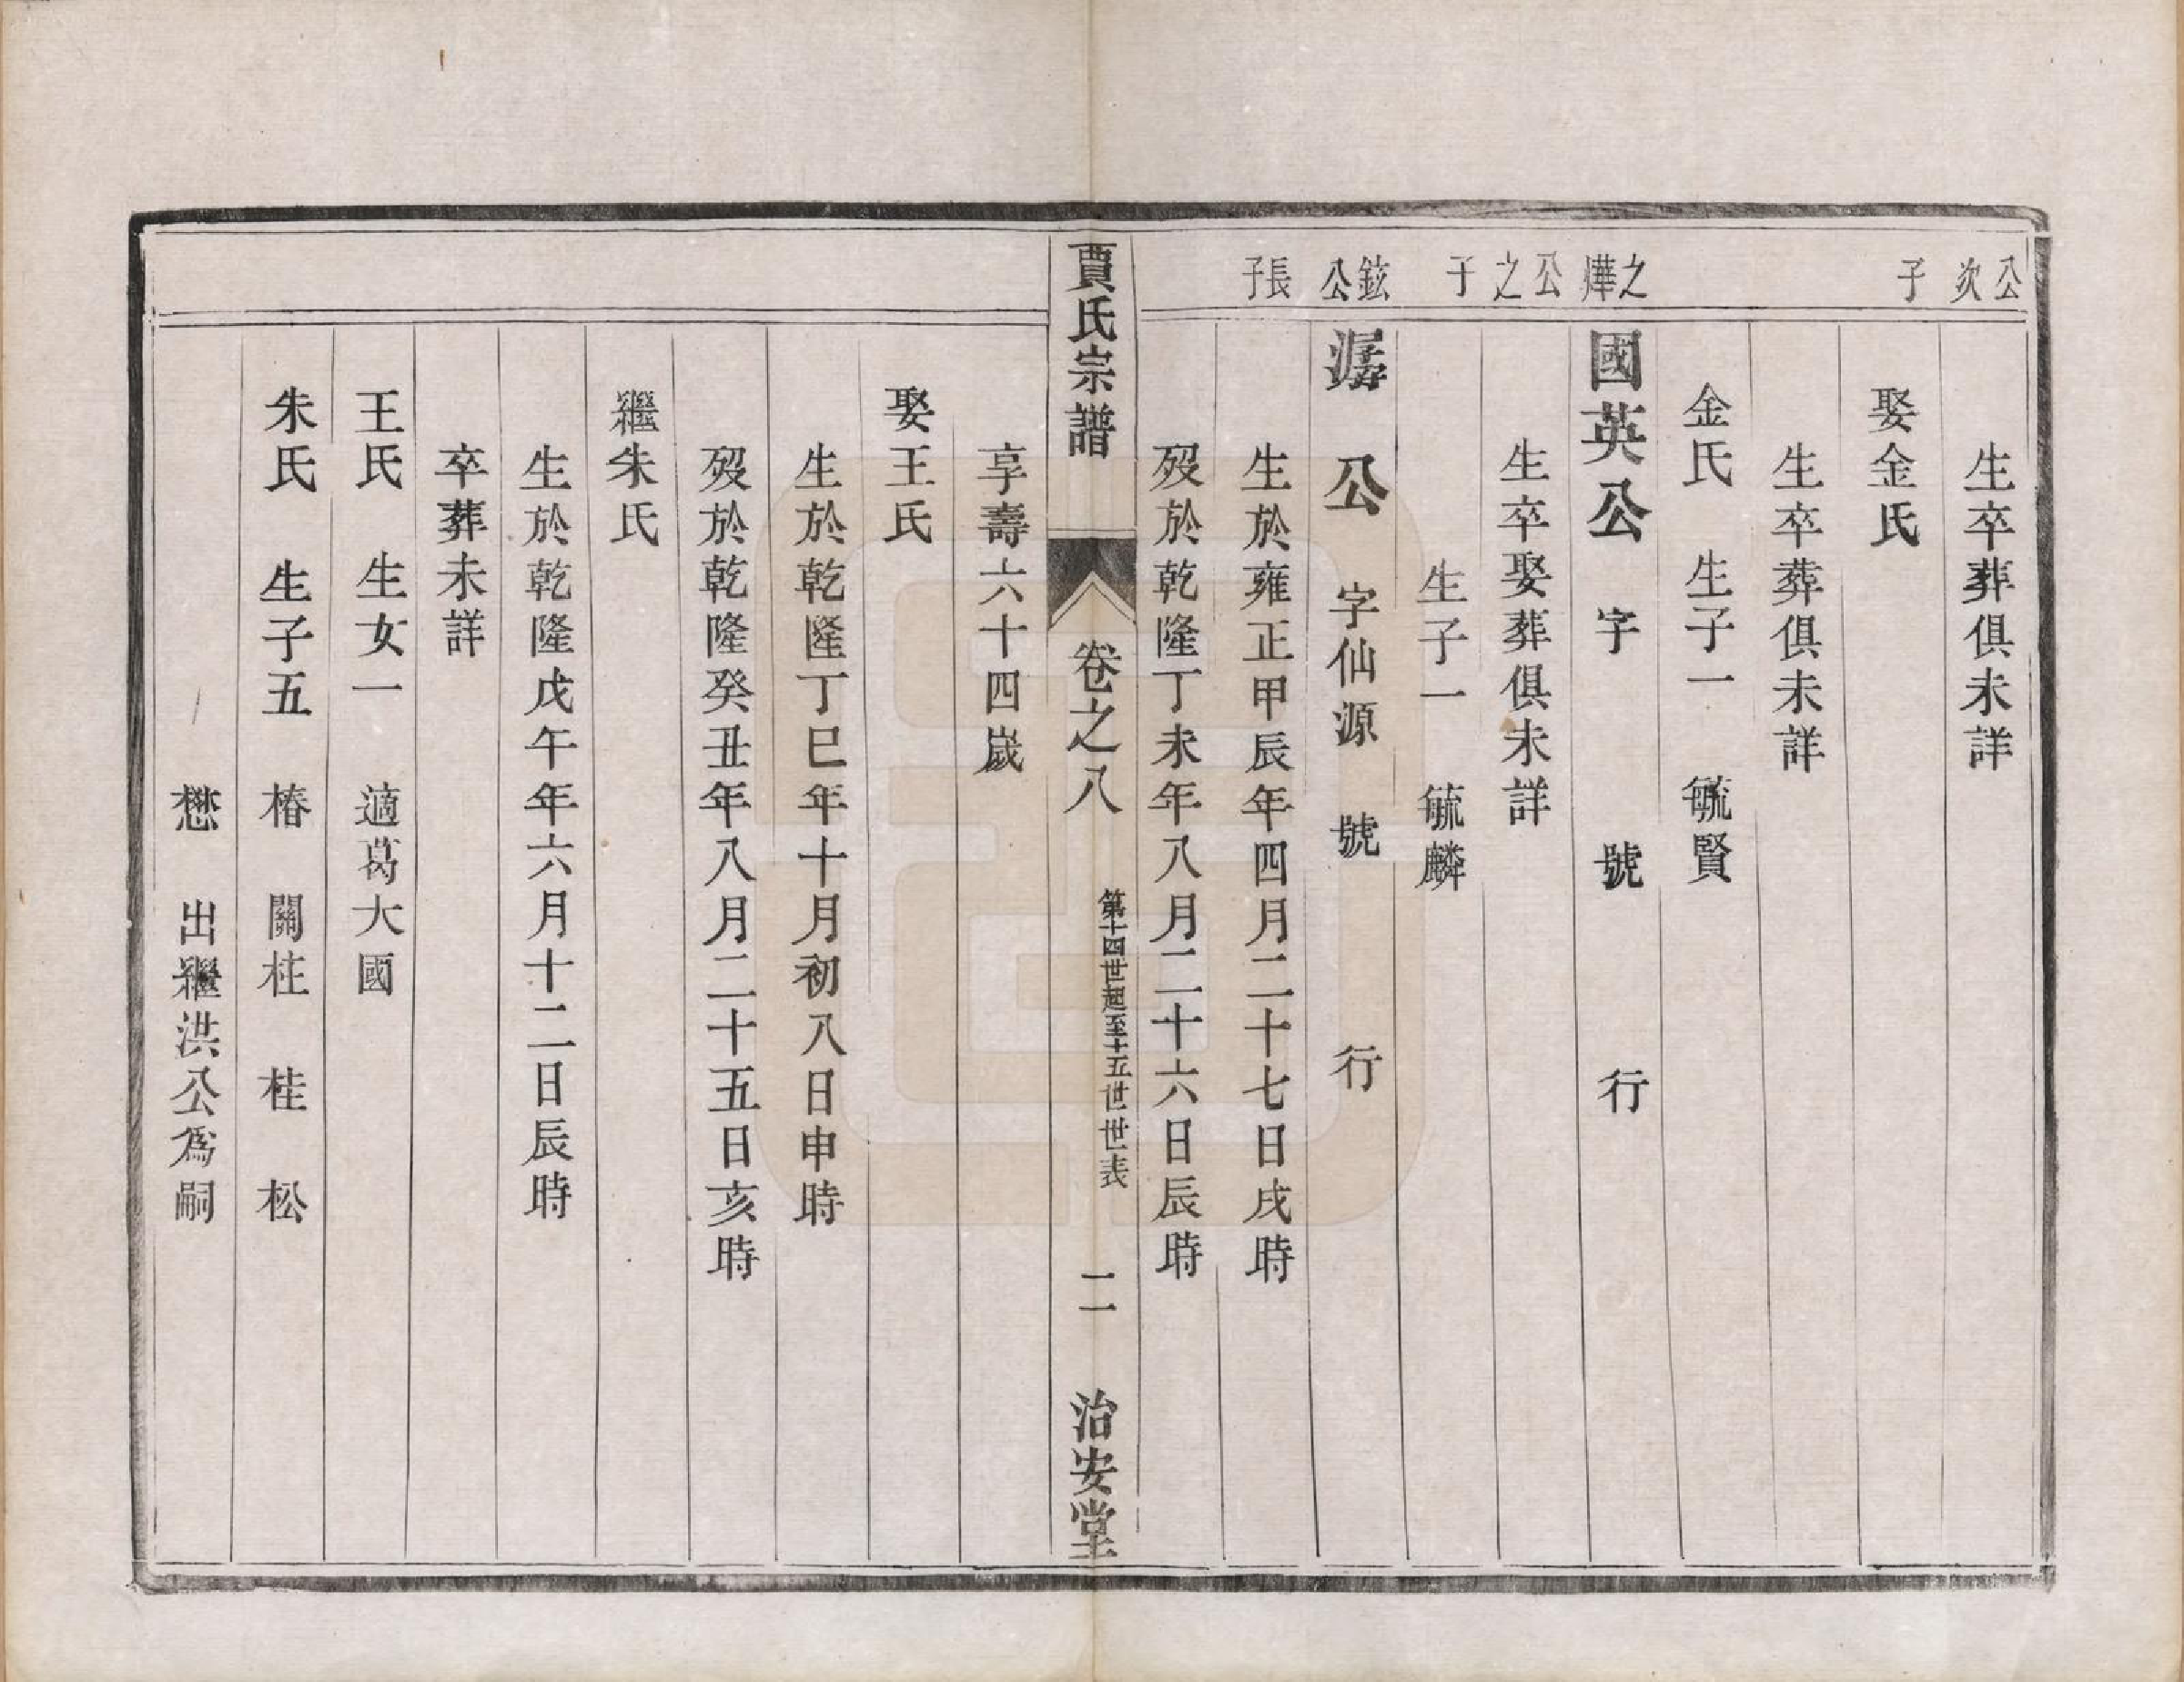 公次子
生卒葬俱未詳
娶金氏
生卒葬俱未詳
金氏 生子一 毓賢
之燁公之子
國英公 字 號 行
生卒娶葬俱未詳
生子一 毓麟
鉉公長子
潺公 字仙源 號 行
生於雍正甲辰年四月二十七日戌時
歿於乾隆丁未年八月二十六日辰時
賈氏宗譜 卷之八 第十四世起至十五世世表 二 治安堂
享壽六十四歲
娶王氏
生於乾隆丁巳年十月初八日申時
歿於乾隆癸丑年八月二十五日亥時
繼朱氏
生於乾隆戊午年六月十二日辰時
卒葬未詳
王氏 生女一 適葛大國
朱氏 生子五 椿 關柱 桂 松
懋 出繼洪公爲嗣